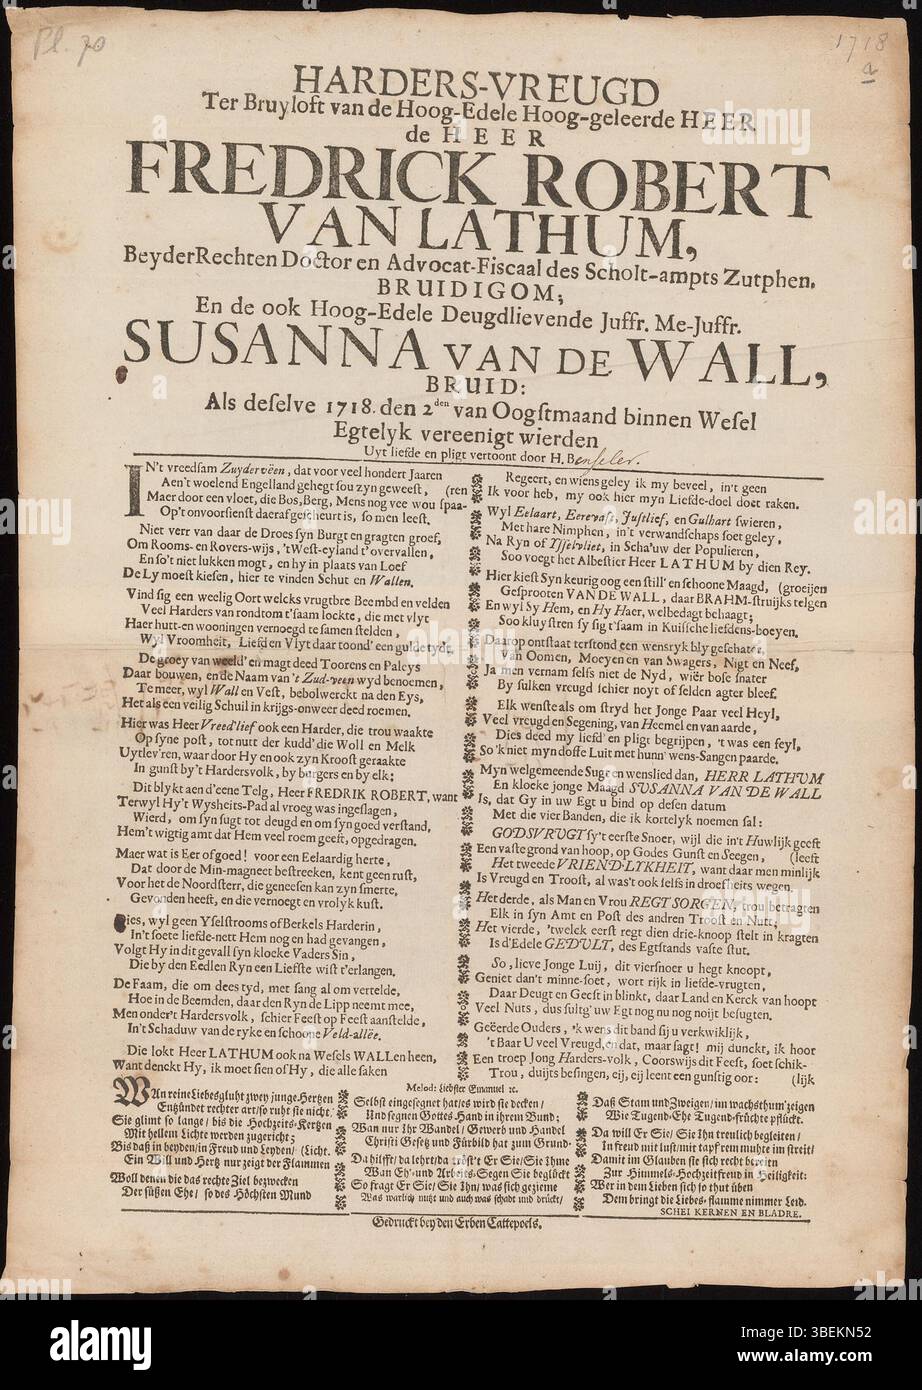 Pl. 70
1718
a
HARDERS-VREUGD
Ter Bruyloft van de Hoog-Edele Hoog-geleerde HEER
de HEER
FREDRICK ROBERT
VAN LATHUM,
Beyder Rechten Doctor en Advocat-Fiscaal des Scholt-ampts Zutphen.
BRUIDIGOM,
En de ook Hoog-Edele Deugdlievende Juffr. Me-Juffr.
SUSANNA VAN DE WALL,
BRUID:
Als deselve 1718. den 2den van Oogstmaand binnen Wesel
Egtelyk vereenigt wierden
Uyt liefde en pligt vertoont door H. Benseler.
IN't vreedsam Zuydervëen, dat voor veel hondert Jaaren
Aen't woelend Engelland gehegt sou zyn geweest, (ren
Maer door een vloet, die Bos, Berg, Mens nog vee wou spaa-
Op't onvoorsienst daeraf gescheurt is, so men leest,
Niet verr van daar de Droes syn Burgt en gragten groef,
Om Rooms- en Rovers-wijs, 't West-eyland t'overvallen,
En so't niet lukken mogt, en hy in plaats van Loef
De Ly moest kiesen, hier te vinden Schut en Wallen.
Vind sig een weelig Oort welcks vrugtbre Beembd en velden
Veel Harders van rondtom t'saam lockte, die met vlyt
Haer hutt-en wooningen vernoegd te samen stelden,
Wyl Vroomheit, Liefd en Vlyt daar toond' een gulde tydt.
De groey van weeld' en magt deed Toorens en Paleys
Daar bouwen, en de Naam van 't Zud-veen wyd benoemen,
Te meer, wyl Wall en Vest, bebolwerckt na den Eys,
Het als een veilig Schuil in krijgs-onweer deed roemen.
Hier was Heer Vreed'lief ook een Harder, die trou waakte
Op syne post, tot nutt der kudd' die Woll en Melk
Uytlev'ren, waar door Hy en ook zyn Kroost geraakte
In gunst by't Hardersvolk, by borgers en by elk:
Dit blykt aen d'eene Telg, Heer FREDRIK ROBERT, want
Terwyl Hy't Wysheits-Pad al vroeg was ingeslagen,
Wierd, om syn sugt tot deugd en om syn goed verstand,
Hem't wigtig amt dat Hem veel roem geeft, opgedragen.
Maer wat is Eer of goed! voor een Eelaardig herte,
Dat door de Min-magneet bestreeken, kent geen rust,
Voor het de Noordsterr, die geneesen kan zyn smerte,
Gevonden heest, en die vernoegt en vrolyk kust.
Dies, wyl geen Yselstrooms of Berkels Harderin,
In't soete liefde-nett Hem nog en had gevangen,
Volgt Hy in dit gevall syn kloeke Vaders Sin,
Die by den Eedlen Ryn een Liefste wist t'erlangen.
De Faam, die om dees tyd, met sang al om vertelde,
Hoe in de Beemden, daar den Ryn de Lipp neemt mee,
Men onder't Hardersvolk, schier Feest op Feest aanstelde,
In't Schaduw van de ryke en schoone Veld-allëe.
Die lokt Heer LATHUM ook na Wesels WALL en heen,
Want denckt Hy, ik moet sien of Hy, die alle saken
Regeert, en wiens geley ik my beveel, in't geen
Ik voor heb, my ook hier myn Liefde-doel doet raken.
Wyl Eelaart, Eerevast, Justlief, en Gulhart swieren,
Met hare Nimphen, in't verwandschaps soet geley,
Na Ryn of Ysselvliet, in Scha'uw der Populieren,
Soo voegt het Albestier Heer LATHUM by dien Rey.
Hier kiest Syn keurig oog een still' en schoone Maagd, (groeijen
Gesprooten VAN DE WALL, daar BRAHM-struijks telgen
En wyl Sy Hem, en Hy Haer, welbedagt behaagt;
Soo kluystren sy sig t'saam in Kuissche liefdens-boeyen.
Daarop ontstaat terstond een wensryk bly geschater,
Van Oomen, Moeyen en van Swagers, Nigt en Neef,
Ja men vernam selfs niet de Nyd, wiër bose snater
By sulken vreugd schier noyt of selden agter bleef.
Elk wenste als om stryd het Jonge Paar veel Heyl,
Veel vreugd en Segening, van Heemel en van aarde,
Dies deed my liefd' en pligt begrijpen, 't was een feyl,
So 'k niet myn dosse Luit met hunn' wens-Sangen paarde.
Myn welgemeende Sugt en wens lied dan, HERR LATHUM
En kloeke jonge Maagd SUSANNA VAN DE WALL
Is, dat Gy in uw Egt u bind op desen datum
Met die vier Banden, die ik kortelyk noemen sal:
GODSVRUGT sy't eerste Snoer, wijl die in't Huwlijk geest
Een vaste grond van hoop, op Godes Gunst en Seegen, (leest
Het tweede VRIENDLYKHEIT, want daar men minlijk
Is Vreugd en Troost, al was't ook selfs in droefheits wegen.
Het derde, als Man en Vrou REGT SORGEN, trou betragten
Elk in syn Amt en Post des andren Troost en Nutt;
Het vierde, 'twelck eerst regt dien drie-knoop stelt in kragten
Is d'Edele GEDULT, des Egtstands vaste stut.
So, lieve Jonge Luij, dit viersnoer u hegt knoopt,
Geniet dan't minne-soet, wort rijk in liefde-vrugten,
Daar Deugt en Geest in blinkt, daar Land en Kerck van hoopt
Veel Nuts, dus sultg' uw Egt nog nu nog noijt besugten.
Geëerde Ouders, 'k wens dit band sij u verkwiklijk,
't Baar U veel Vreugd, en dat, maar sagt! mij dunckt, ik hoor
Een troep Jong Harders-volk, Coorswijs dit Feest, soet schik-
Trou, duijts besingen, eij, eij leent een gunstig oor: (lijk
Melod: Liebster Emanuel ꝛc.
WAn reine Liebesgluht zwey junge-Hertzen
Entzündet rechter art/ so ruht sie nicht.
Sie glimt so lange/ bis die Hochzeits-Kertzen
Mit hellem Lichte werden zugericht;
Bis daß in beyden/ in Freud und Leyden/ (Licht.
Ein Will und Hertz nur zeigt der Flammen
Woll denen die das rechte Ziel bezwecken
Der süßen Ehe/ so des Höchsten Mund
Selbst eingesegnet hat/ es wird sie decken/
Und segnen Gottes Hand in ihrem Bund;
Wan nur Ihr Wandel/ Gewerb und Handel
Christi Gesetz und Fürbild hat zum Grund.
Da hilfft/ da lehrt/ da tröst't Er Sie/ Sie Ihme
Wan Eh'- und Arbeits-Segen Sie beglückt
So frage Er Sie/ Sie Ihn/ was sich gezieme
Was warlich nutzt und auch was schadt und drückt/
Daß Stam und Zweigen/ im wachsthum zeigen
Wie Tugend-Ehe Tugend-früchte pflückt.
Da will Er Sie/ Sie Ihn treulich begleiten/
In freud mit lust/ mit tapfrem muhte im streit/
Damit im Glauben sie sich recht bereiten
Zur Himmels-Hochzeitfreud in Heiligkeit:
Wer in dem Lieben sich so thut üben
Dem bringt die Liebes-flamme nimmer Leid.
SCHEI KERNEN EN BLADRE.
Gedruckt bey den Erben Cattepoels.
alamy
Image ID: 3BEKN52
www.alamy.com